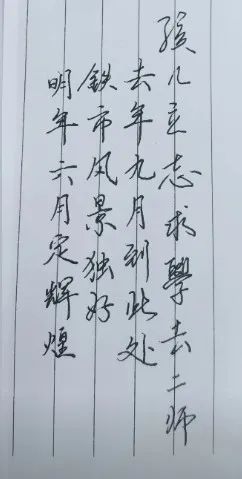 孩儿立志求學去二师
去年九月到此处
鉄市风景独好
明年六月定辉煌